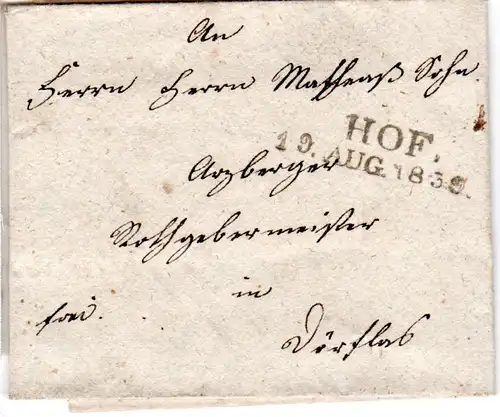 An
Herrn Herrn Matheaß Sohn
HOF.
19. AUG. 1839.
Arzberger
Rothgebermeister
in
frei.
Dörflas